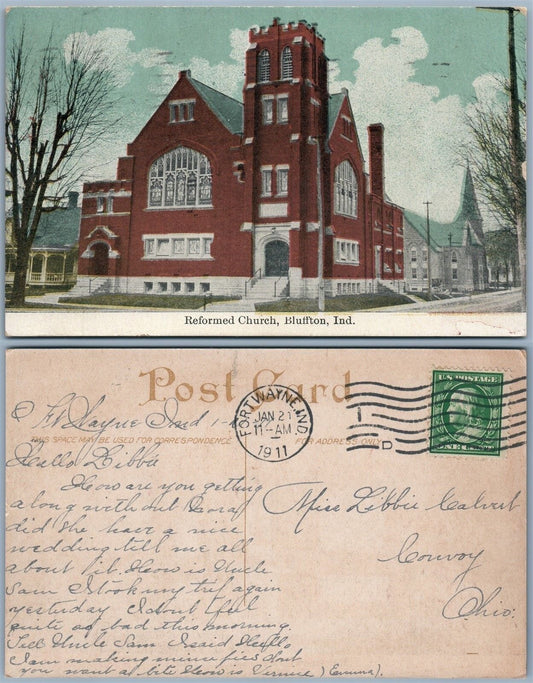 Reformed Church, Bluffton, Ind.
Post Card
Ft Wayne Ind 1-
THIS SPACE MAY BE USED FOR CORRESPONDENCE
FOR ADDRESS ONLY
FORT WAYNE, IND.
JAN 21
11-AM
1911
D
U.S. POSTAGE
Hello Libbie
How are you getting
along without Cora
did she have a nice
wedding tell me all
about it. How is Uncle
Sam I took my trip again
yesterday I dont feel
quite as bad this morning.
Tell Uncle Sam I said Hello
I am making mince pies dont
you want a bite How is Vernice (Emma).
Miss Libbie Calvert
Convoy
Ohio.